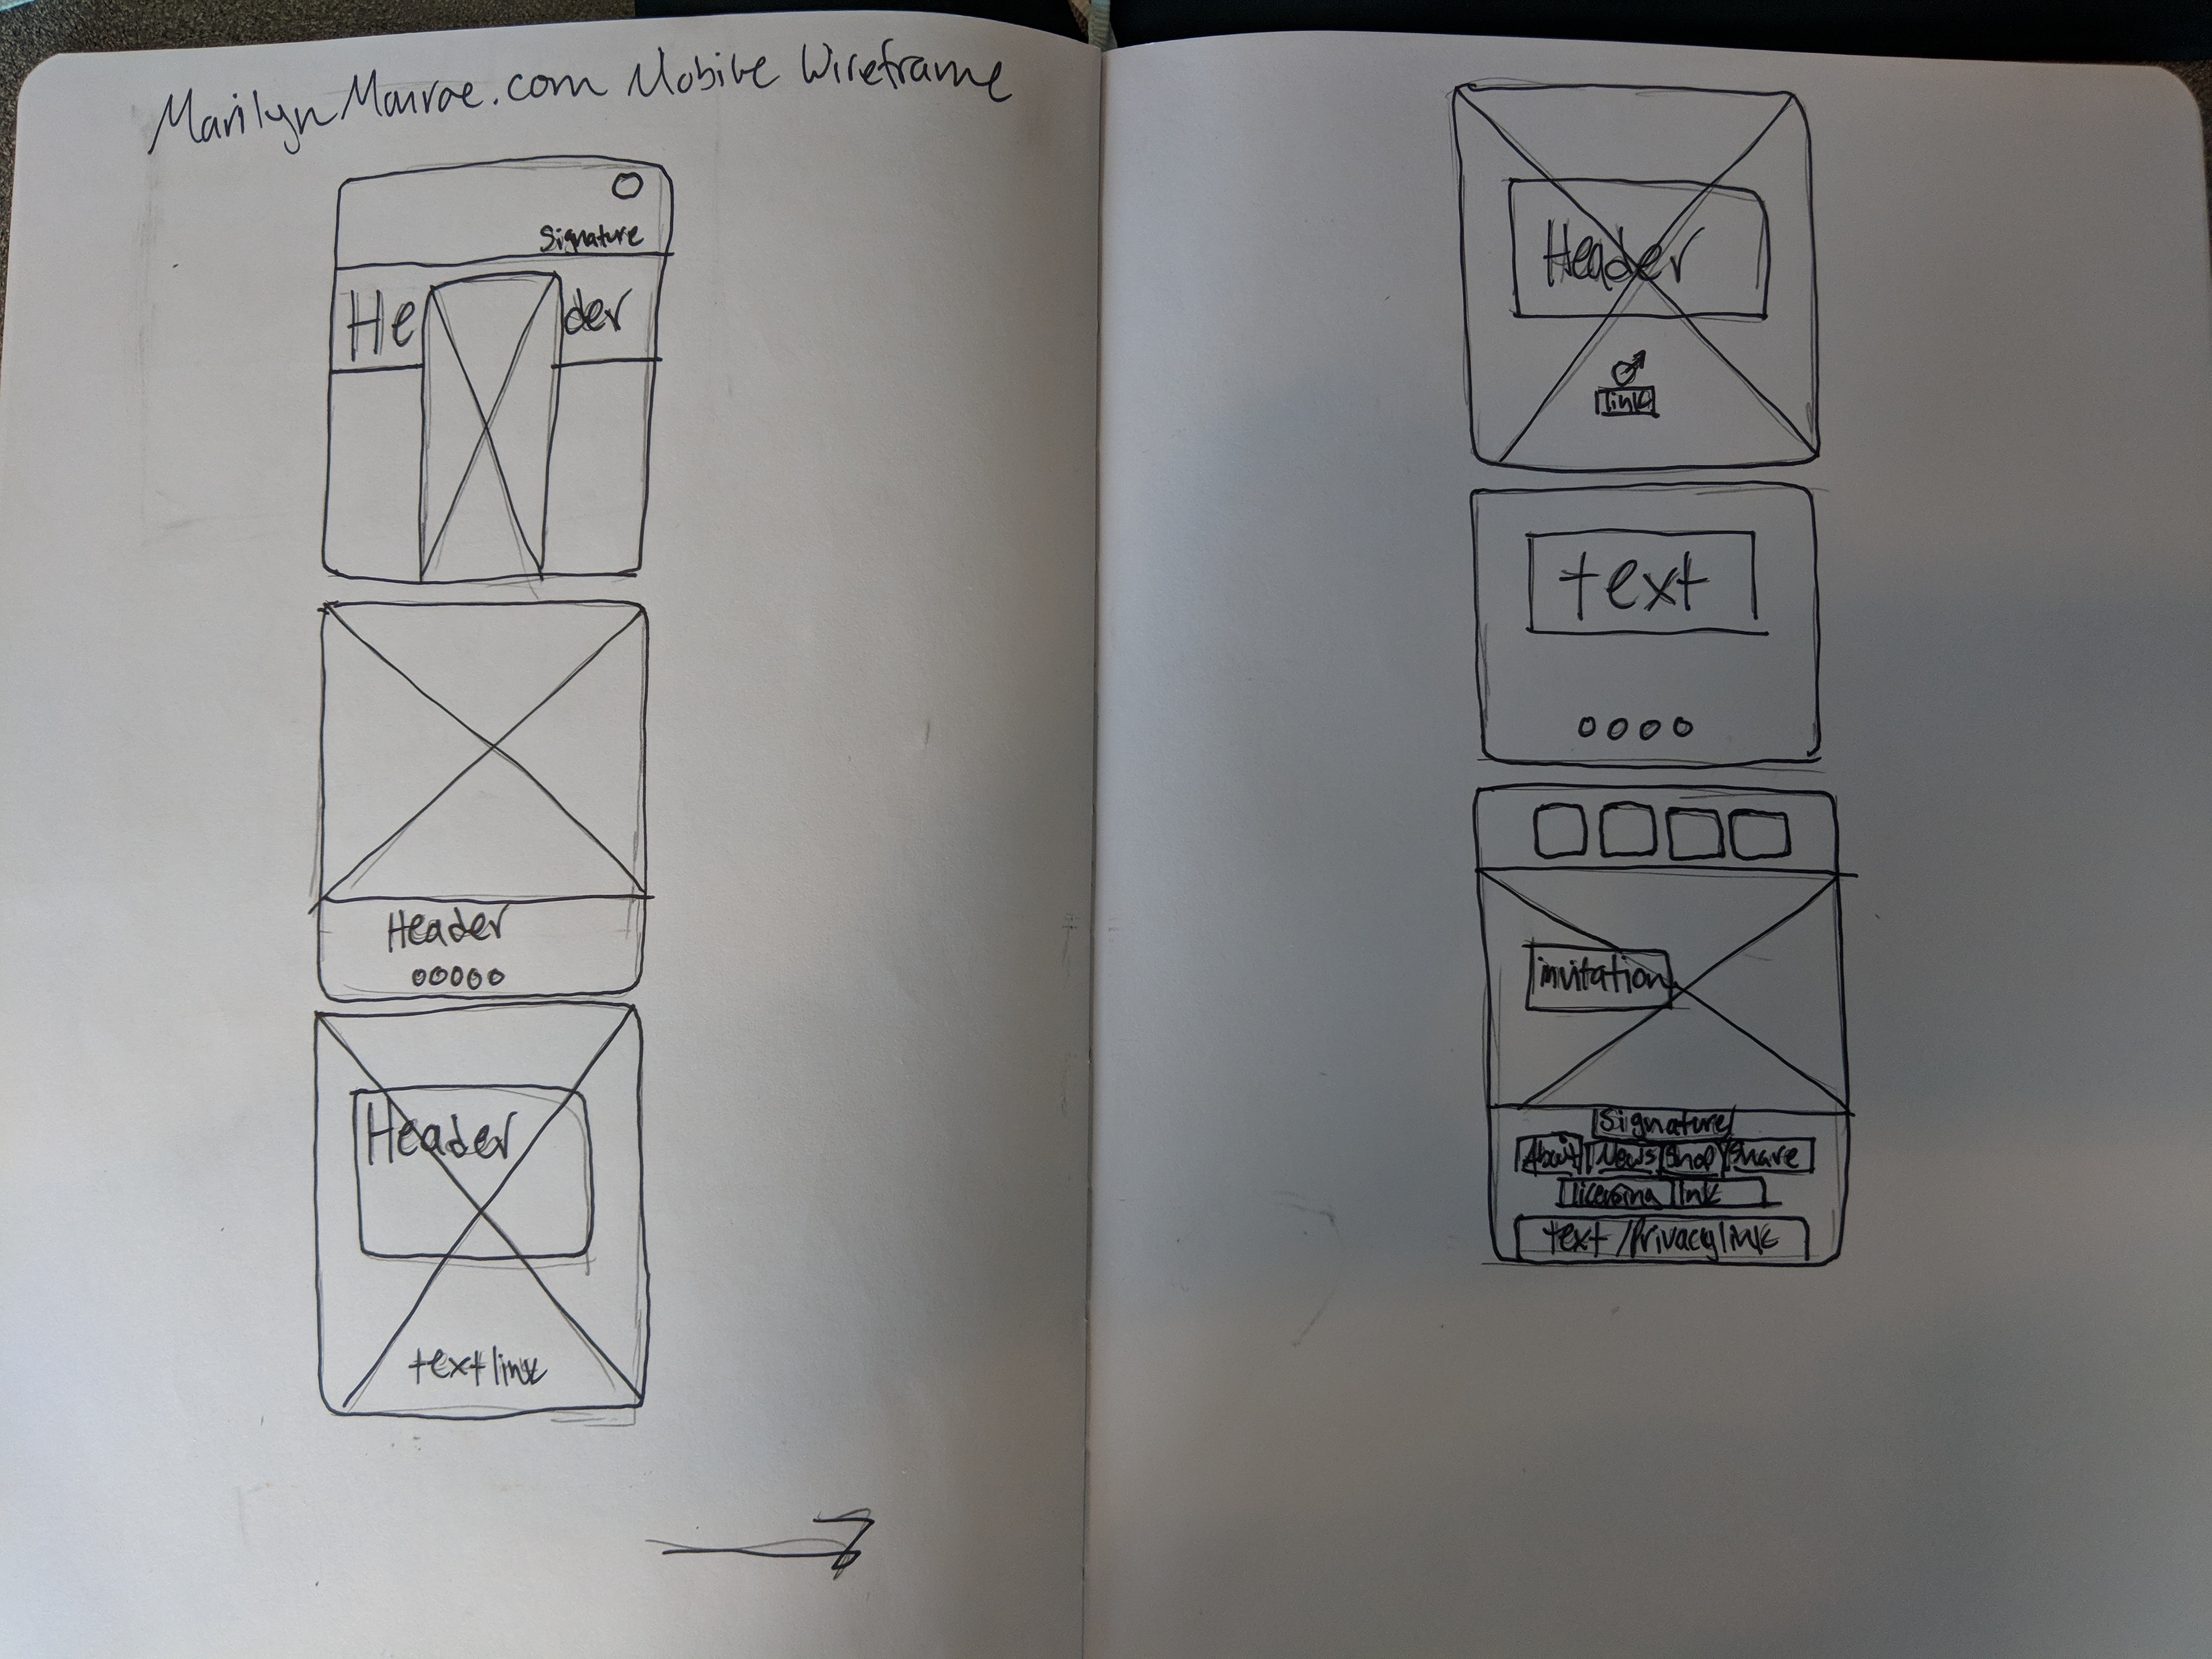 Marilyn Monroe.com Mobile Wireframe
Signature
He der
Header
Header
text link
Header
link
text
invitation
Signature
About News Shop Share
licensing link
text / Privacy link